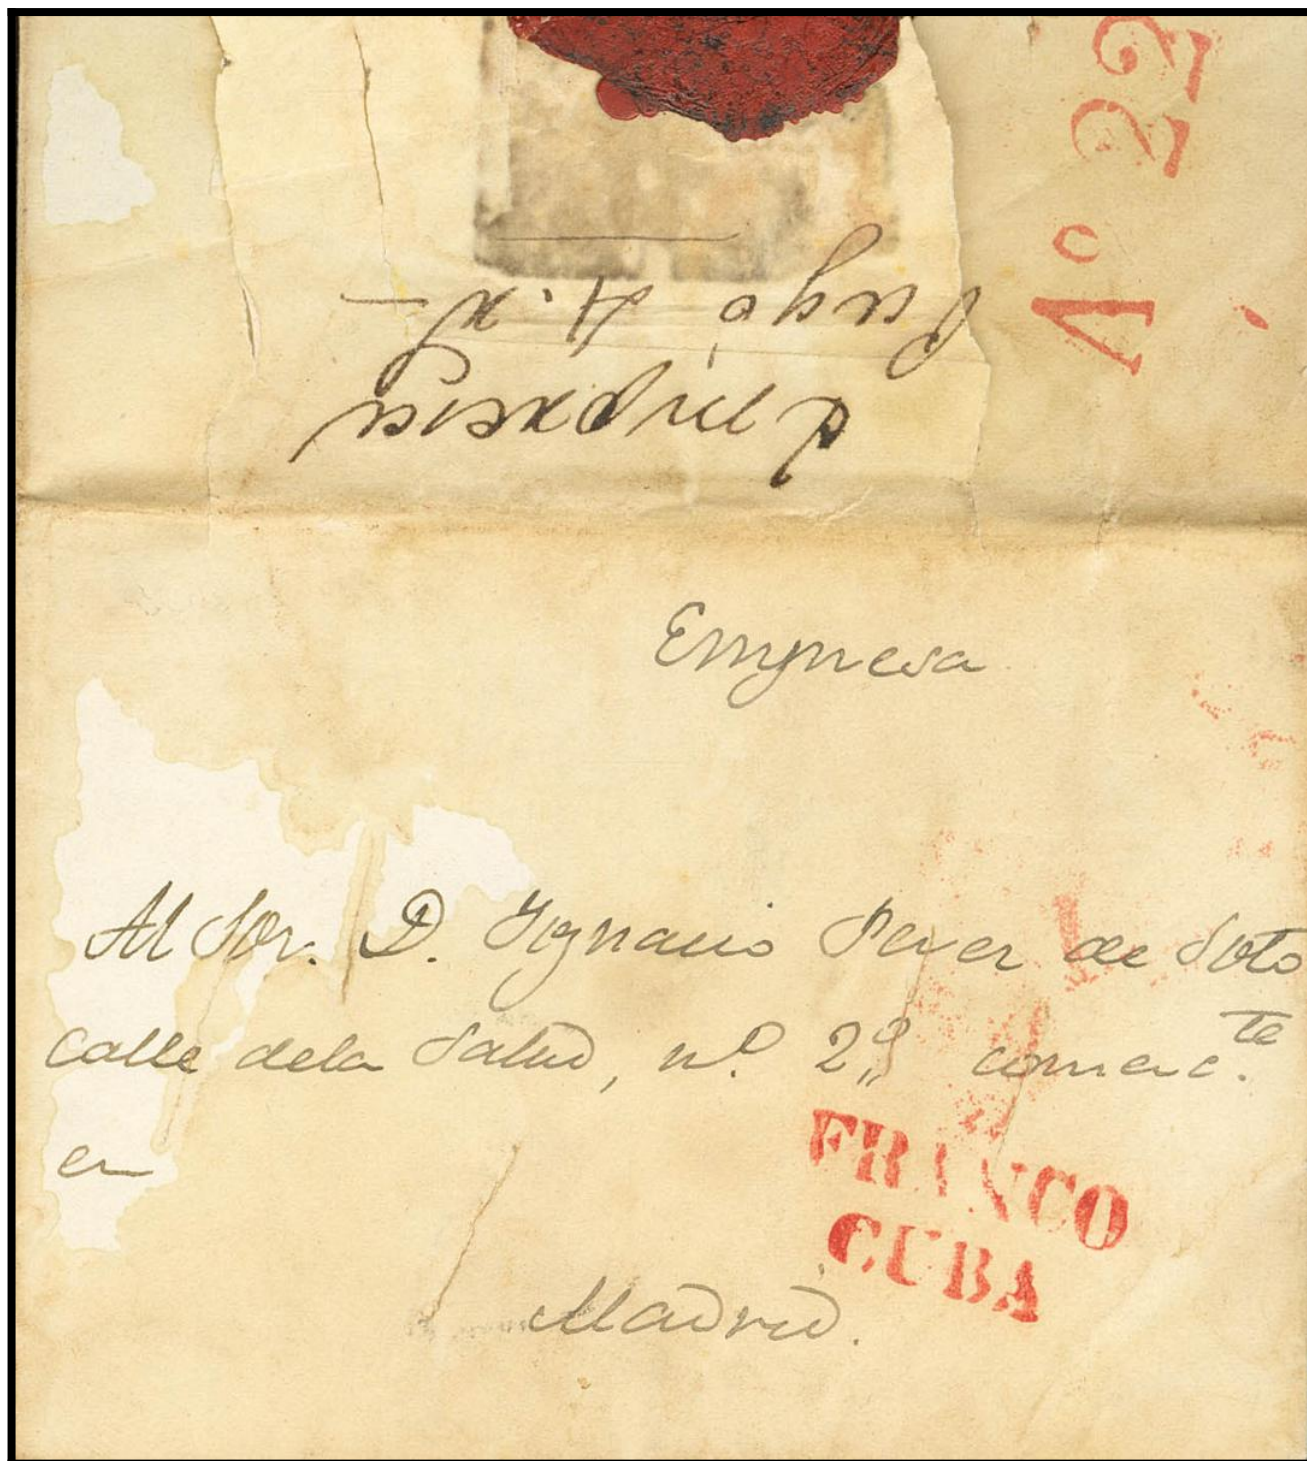 Nº 22
Pagó 4. r
Empresa
Empresa
Al Sor. D. Ygnacio Perer de Soto
calle dela Salud, nº. 2,, comerc.te
en
FRANCO
CUBA
Madrid.